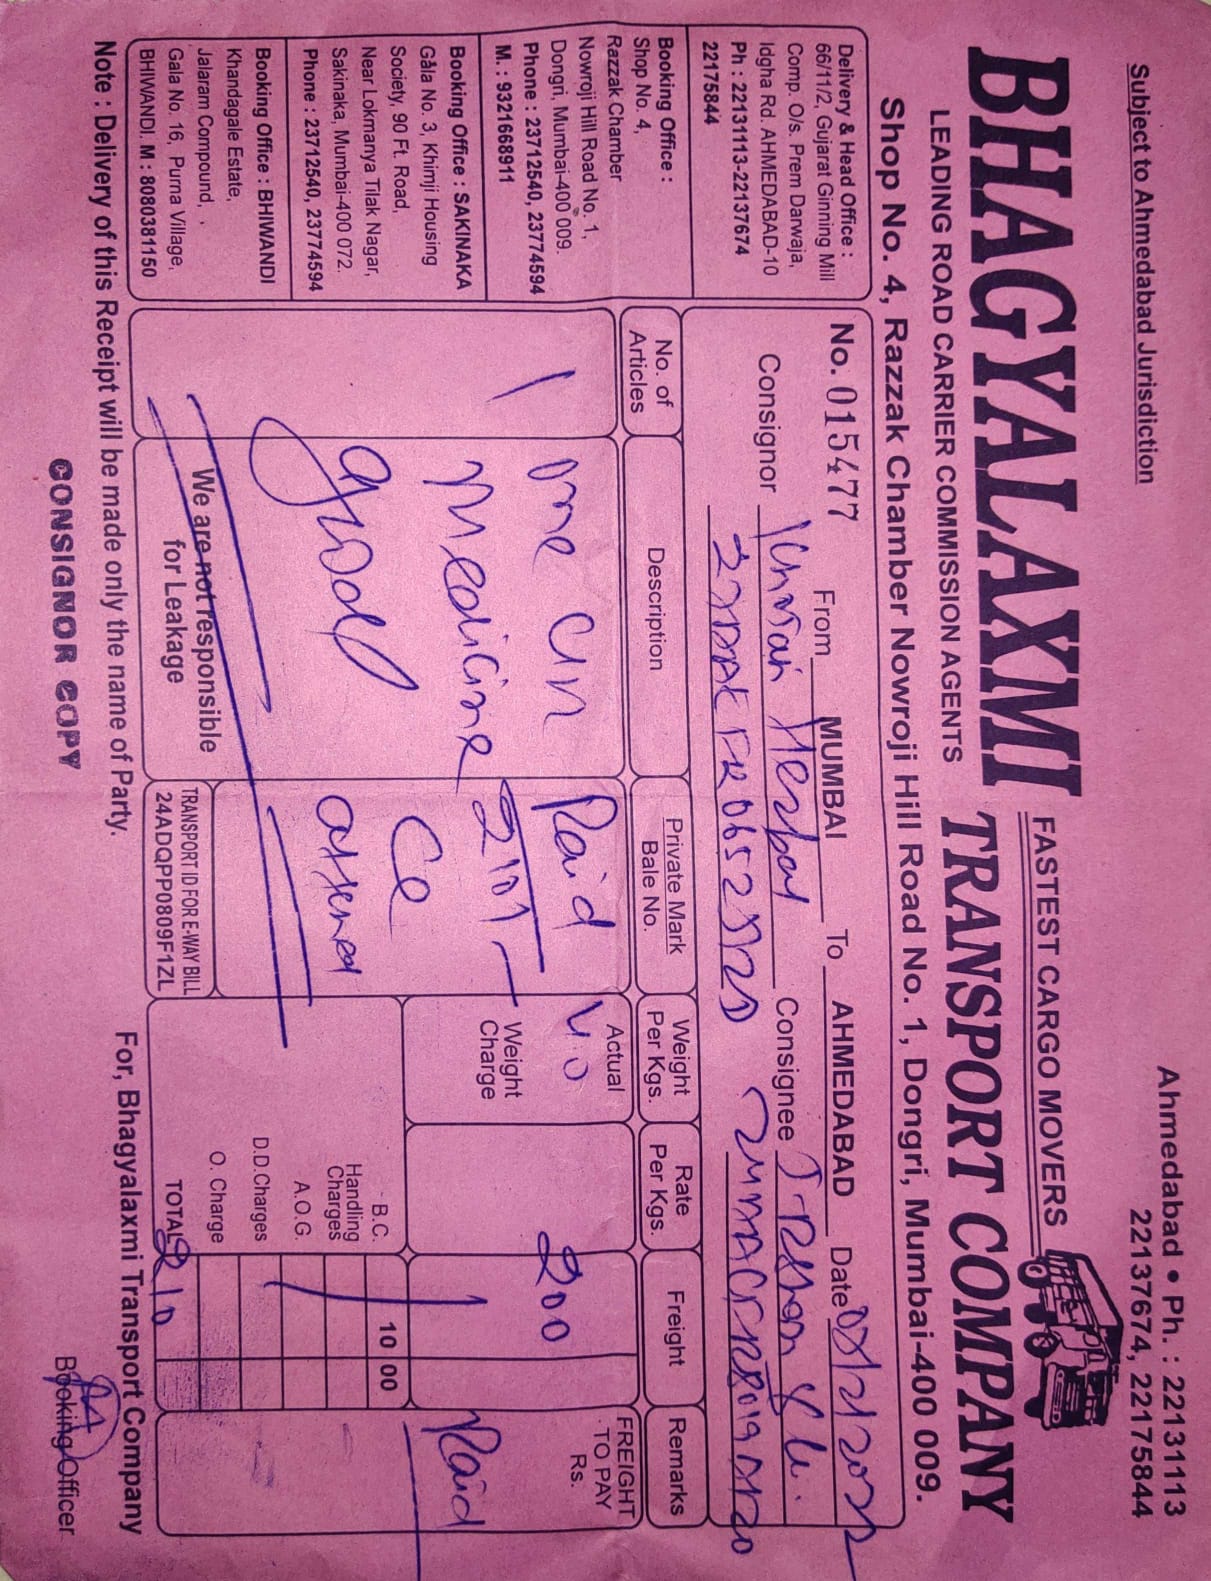 Subject to Ahmedabad Jurisdiction
Ahmedabad • Ph. : 22131113
22137674, 22175844
FASTEST CARGO MOVERS
BHAGYALAXMI TRANSPORT COMPANY
LEADING ROAD CARRIER COMMISSION AGENTS
Shop No. 4, Razzak Chamber Nowroji Hill Road No. 1, Dongri, Mumbai-400 009.
Delivery & Head Office :
66/11/2, Gujarat Ginning Mill
Comp. O/s. Prem Darwaja,
Idgha Rd. AHMEDABAD-10
Ph : 22131113-22137674
22175844
Booking Office :
Shop No. 4,
Razzak Chamber
Nowroji Hill Road No. 1,
Dongri, Mumbai-400 009.
Phone : 23712540, 23774594
M. : 9321668911
Booking Office : SAKINAKA
Gala No. 3, Khimji Housing
Society, 90 Ft. Road,
Near Lokmanya Tilak Nagar,
Sakinaka, Mumbai-400 072.
Phone : 23712540, 23774594
Booking Office : BHIWANDI
Khandagale Estate,
Jalaram Compound,
Gala No. 16, Purna Village,
BHIWANDI. M : 8080381150
No. 015477 From MUMBAI To AHMEDABAD Date
Consignor Herbal Consignee
No. of Articles
Description
Private Mark
Bale No.
Weight
Per Kgs.
Rate
Per Kgs.
Freight
Remarks
one
Medicine
good
Paid
2101
Ce
Actual
Weight
Charge
200
FREIGHT
TO PAY
Rs.
Paid
B.C. 10 00
Handling
Charges
A.O.G.
D.D.Charges
O. Charge
TOTAL 210
We are not responsible
for Leakage
TRANSPORT ID FOR E-WAY BILL
24ADQPP0809F1ZL
Note : Delivery of this Receipt will be made only the name of Party.
For, Bhagyalaxmi Transport Company
CONSIGNOR COPY
Booking Officer